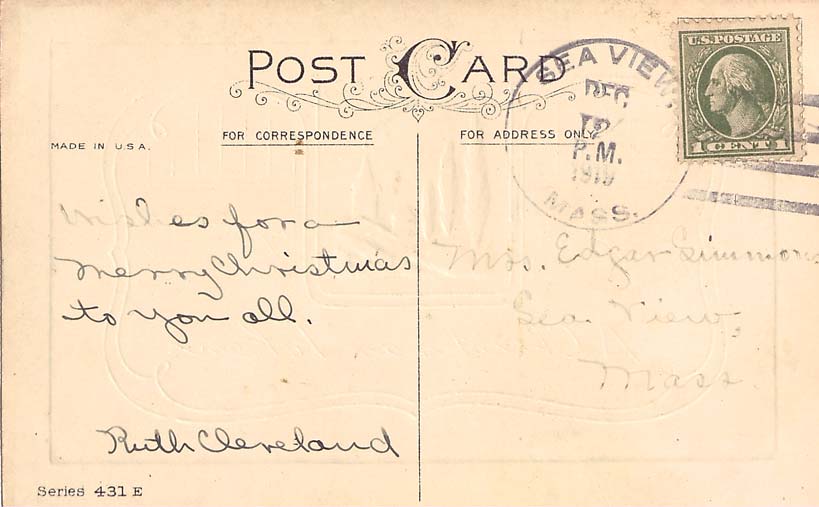 POST CARD
SEA VIEW.
DEC
P.M.
1919
MASS.
U.S. POSTAGE
1 CENT 1
FOR CORRESPONDENCE
FOR ADDRESS ONLY
MADE IN U.S.A.
Wishes for a
Merry Christmas
to you all.
Ruth Cleveland
Mrs. Edgar Simmons
Sea View,
Mass.
Series 431 E